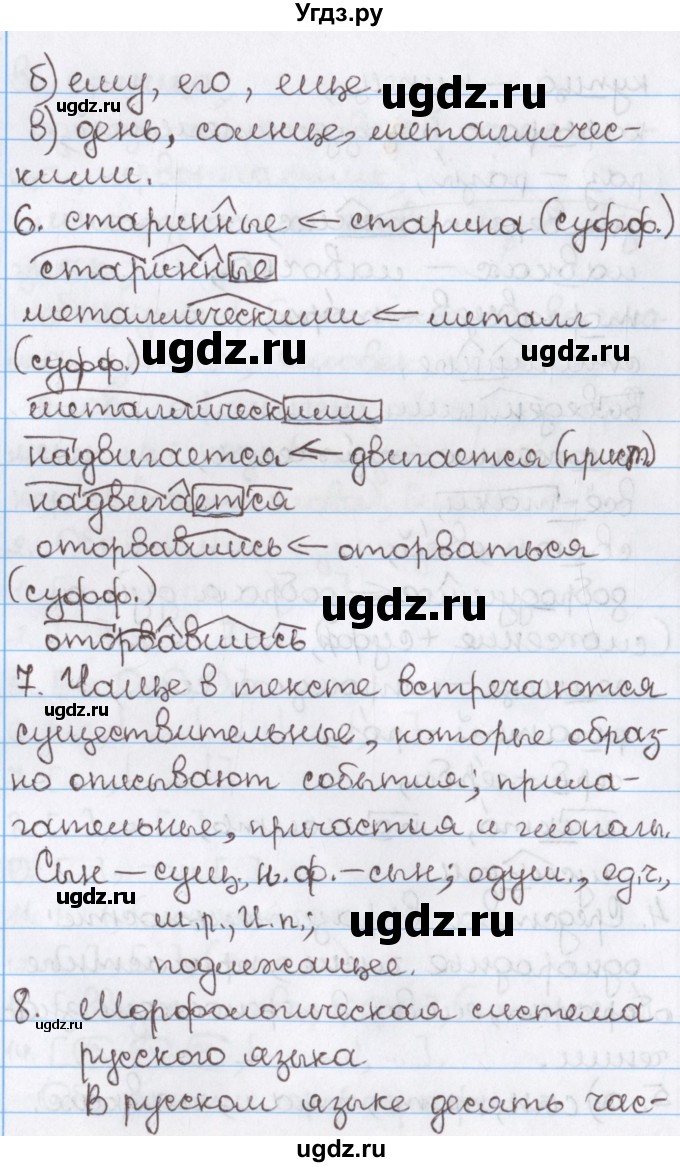 Угдз.ру
б) ему, его, еще.
ugdz.ru
ugdz.ru
в) день, солнце, металличес-
кими.
ugdz.ru
6. старинные ← старина (суфф.)
старинные
металлическими ← металл
(суфф.)
ugdz.ru
ugdz.ru
металлическими
надвигается ← двигается (прист.)
надвигается
оторвавшись ← оторваться
(суфф.)
ugdz.ru
оторвавшись
7. Чаще в тексте встречаются
ugdz.ru
существительные, которые образ-
но описывают события; прила-
гательные, причастия и глаголы.
Сын – сущ., н.ф. – сын; одуш., ед.ч.,
ugdz.ru
м.р., И.п.;
ugdz.ru
подлежащее.
8. Морфологическая система
ugdz.ru
русского языка
В русском языке десять час-
ugdz.ru